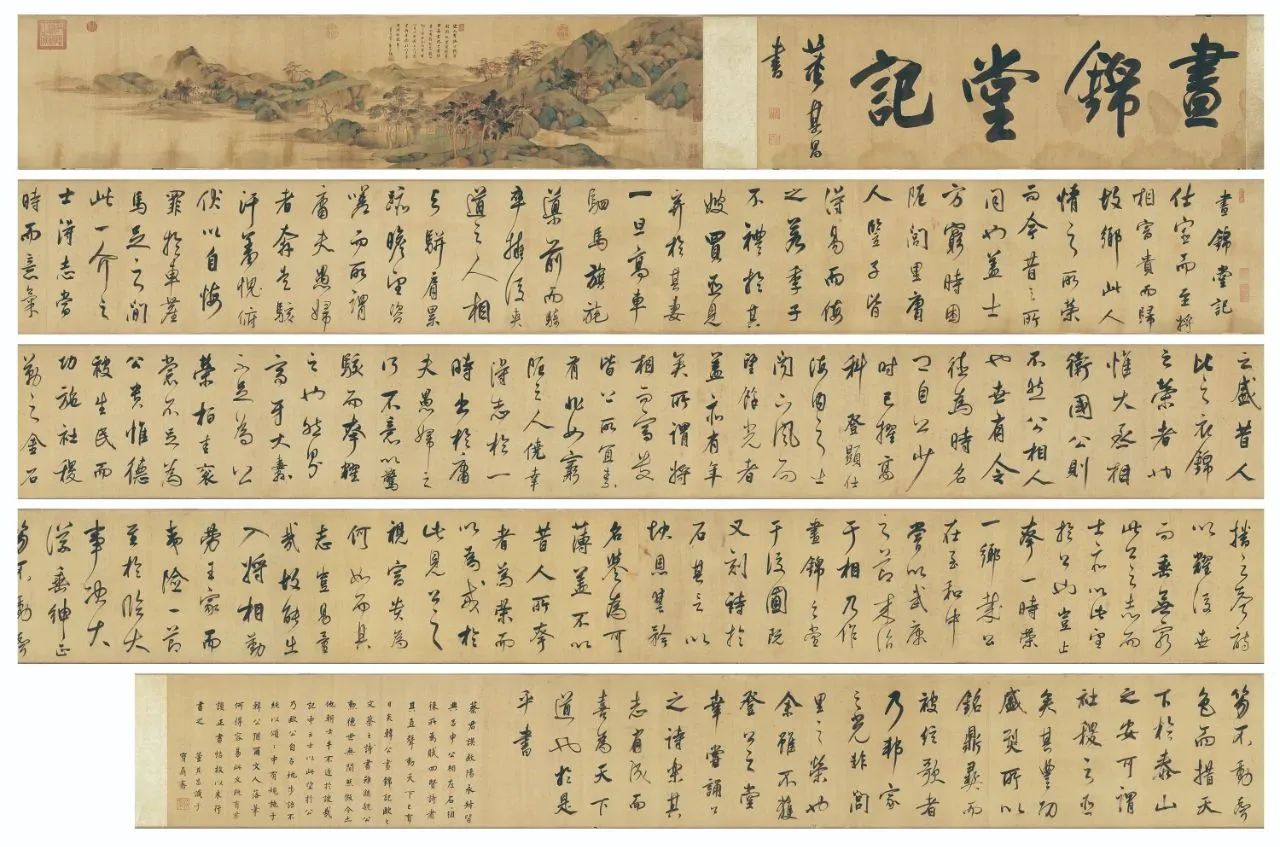 晝錦堂記
董其昌
書
晝錦堂記
仕宦而至將
相富貴而歸
故鄉此人
情之所榮
而今昔之所
同也蓋士
方窮時困
阨閭里庸
人孺子皆
得易而侮
之若季子
不禮於其
嫂買臣見
棄於其妻
一旦高車
駟馬旗旄
導前而騎
卒擁後夾
道之人相
與駢肩累
跡瞻望咨
嗟而所謂
庸夫愚婦
者奔走駭
汗羞愧俯
伏以自悔
罪於車塵
馬足之間
此一介之
士得志當
時而意氣
之盛昔人
比之衣錦
之榮者也
惟大丞相
衛國公則
不然公相人
也世有令
德為時名
卿自公少
時已擢高
科登顯仕
海內之士
聞下風而
望餘光者
蓋亦有年
矣所謂將
相而富貴
皆公所宜素
有非如窮
阨之人僥幸
得志於一
時出於庸
夫愚婦之
不意以驚
駭而夸耀
之也然則
高牙大纛
不足為公
榮桓圭袞
裳不足為
公貴惟德
被生民而
功施社稷
勒之金石
播之聲詩
以耀後世
而垂無窮
此公之志而
士亦以此望
於公也豈止
夸一時榮
一鄉哉公
在至和中
嘗以武康
之節來治
于相乃作
晝錦之堂
于後圃既
又刻詩於
石其言以
快恩讎矜
名譽為可
薄蓋不以
昔人所夸
者為榮而
以為戒於
此見公之
視富貴為
何如而其
志豈易量
哉故能出
入將相勤
勞王家而
夷險一節
至於臨大
事決大
議垂紳正
笏不動聲
笏不動聲
色而措天
下於泰山
之安可謂
社稷之臣
矣其豐功
盛烈所以
銘鼎彝而
被弦歌者
乃邦家
之光非閭
里之榮也
余雖不獲
登公之堂
幸嘗誦公
之詩樂其
志有成而
喜為天下
道也於是
乎書
蔡君謨歐陽永叔皆
書之 董其昌識于
寶鼎齋